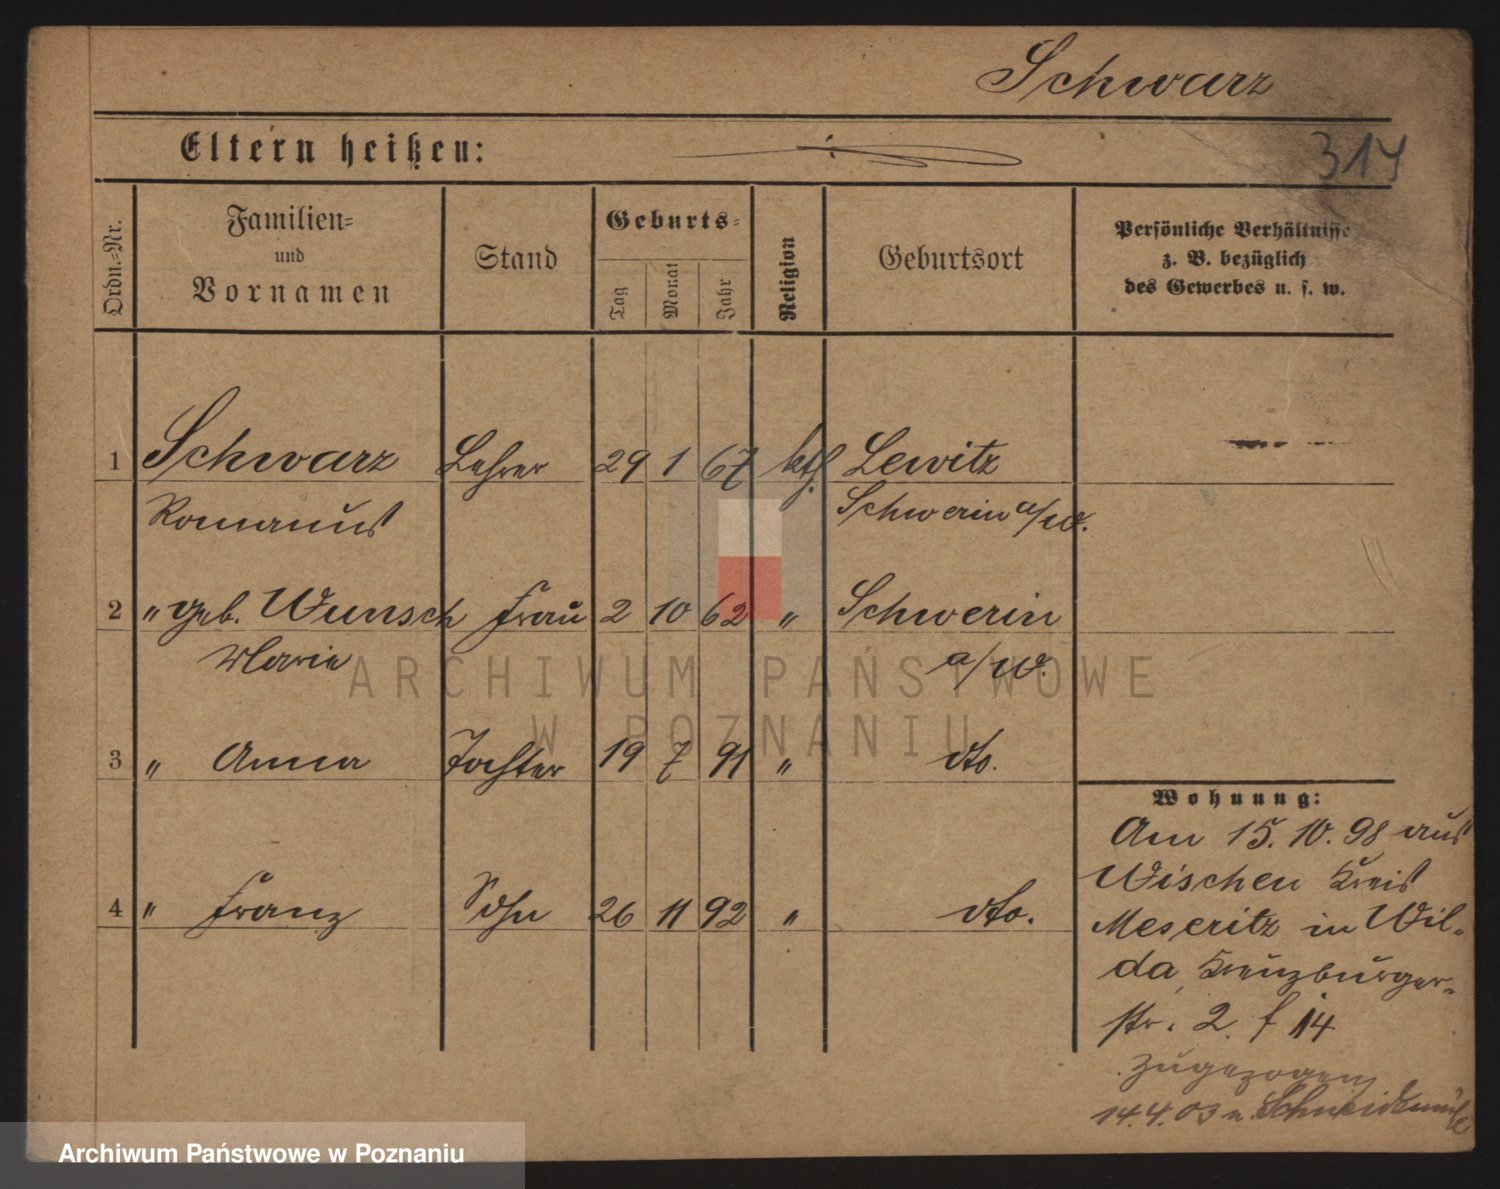 Schwarz
Eltern heißen:
314
Ordn.-Nr.
Familien-
und
Vornamen
Stand
Geburts-
Tag
Monat
Jahr
Religion
Geburtsort
Persönliche Verhältnisse
z. B. bezüglich
des Gewerbes u. s. w.
1 Schwarz Lehrer 29 1 67 kth. Lewitz
Romanus Schwerin a/W.
2 " geb. Wunsch Frau 2 10 62 " Schwerin
Marie a/W.
3 " Anna Tochter 19 7 91 " dto.
4 " Franz Sohn 26 11 92 " dto.
Wohnung:
Am 15.10.98 aus
Wischen Kreis
Meseritz in Wil-
da, Kreuzburger-
str. 2. f 14
zugezogen
14.4.03 n. Schneidemühl
ARCHIWUM PAŃSTWOWE
W POZNANIU
Archiwum Państwowe w Poznaniu